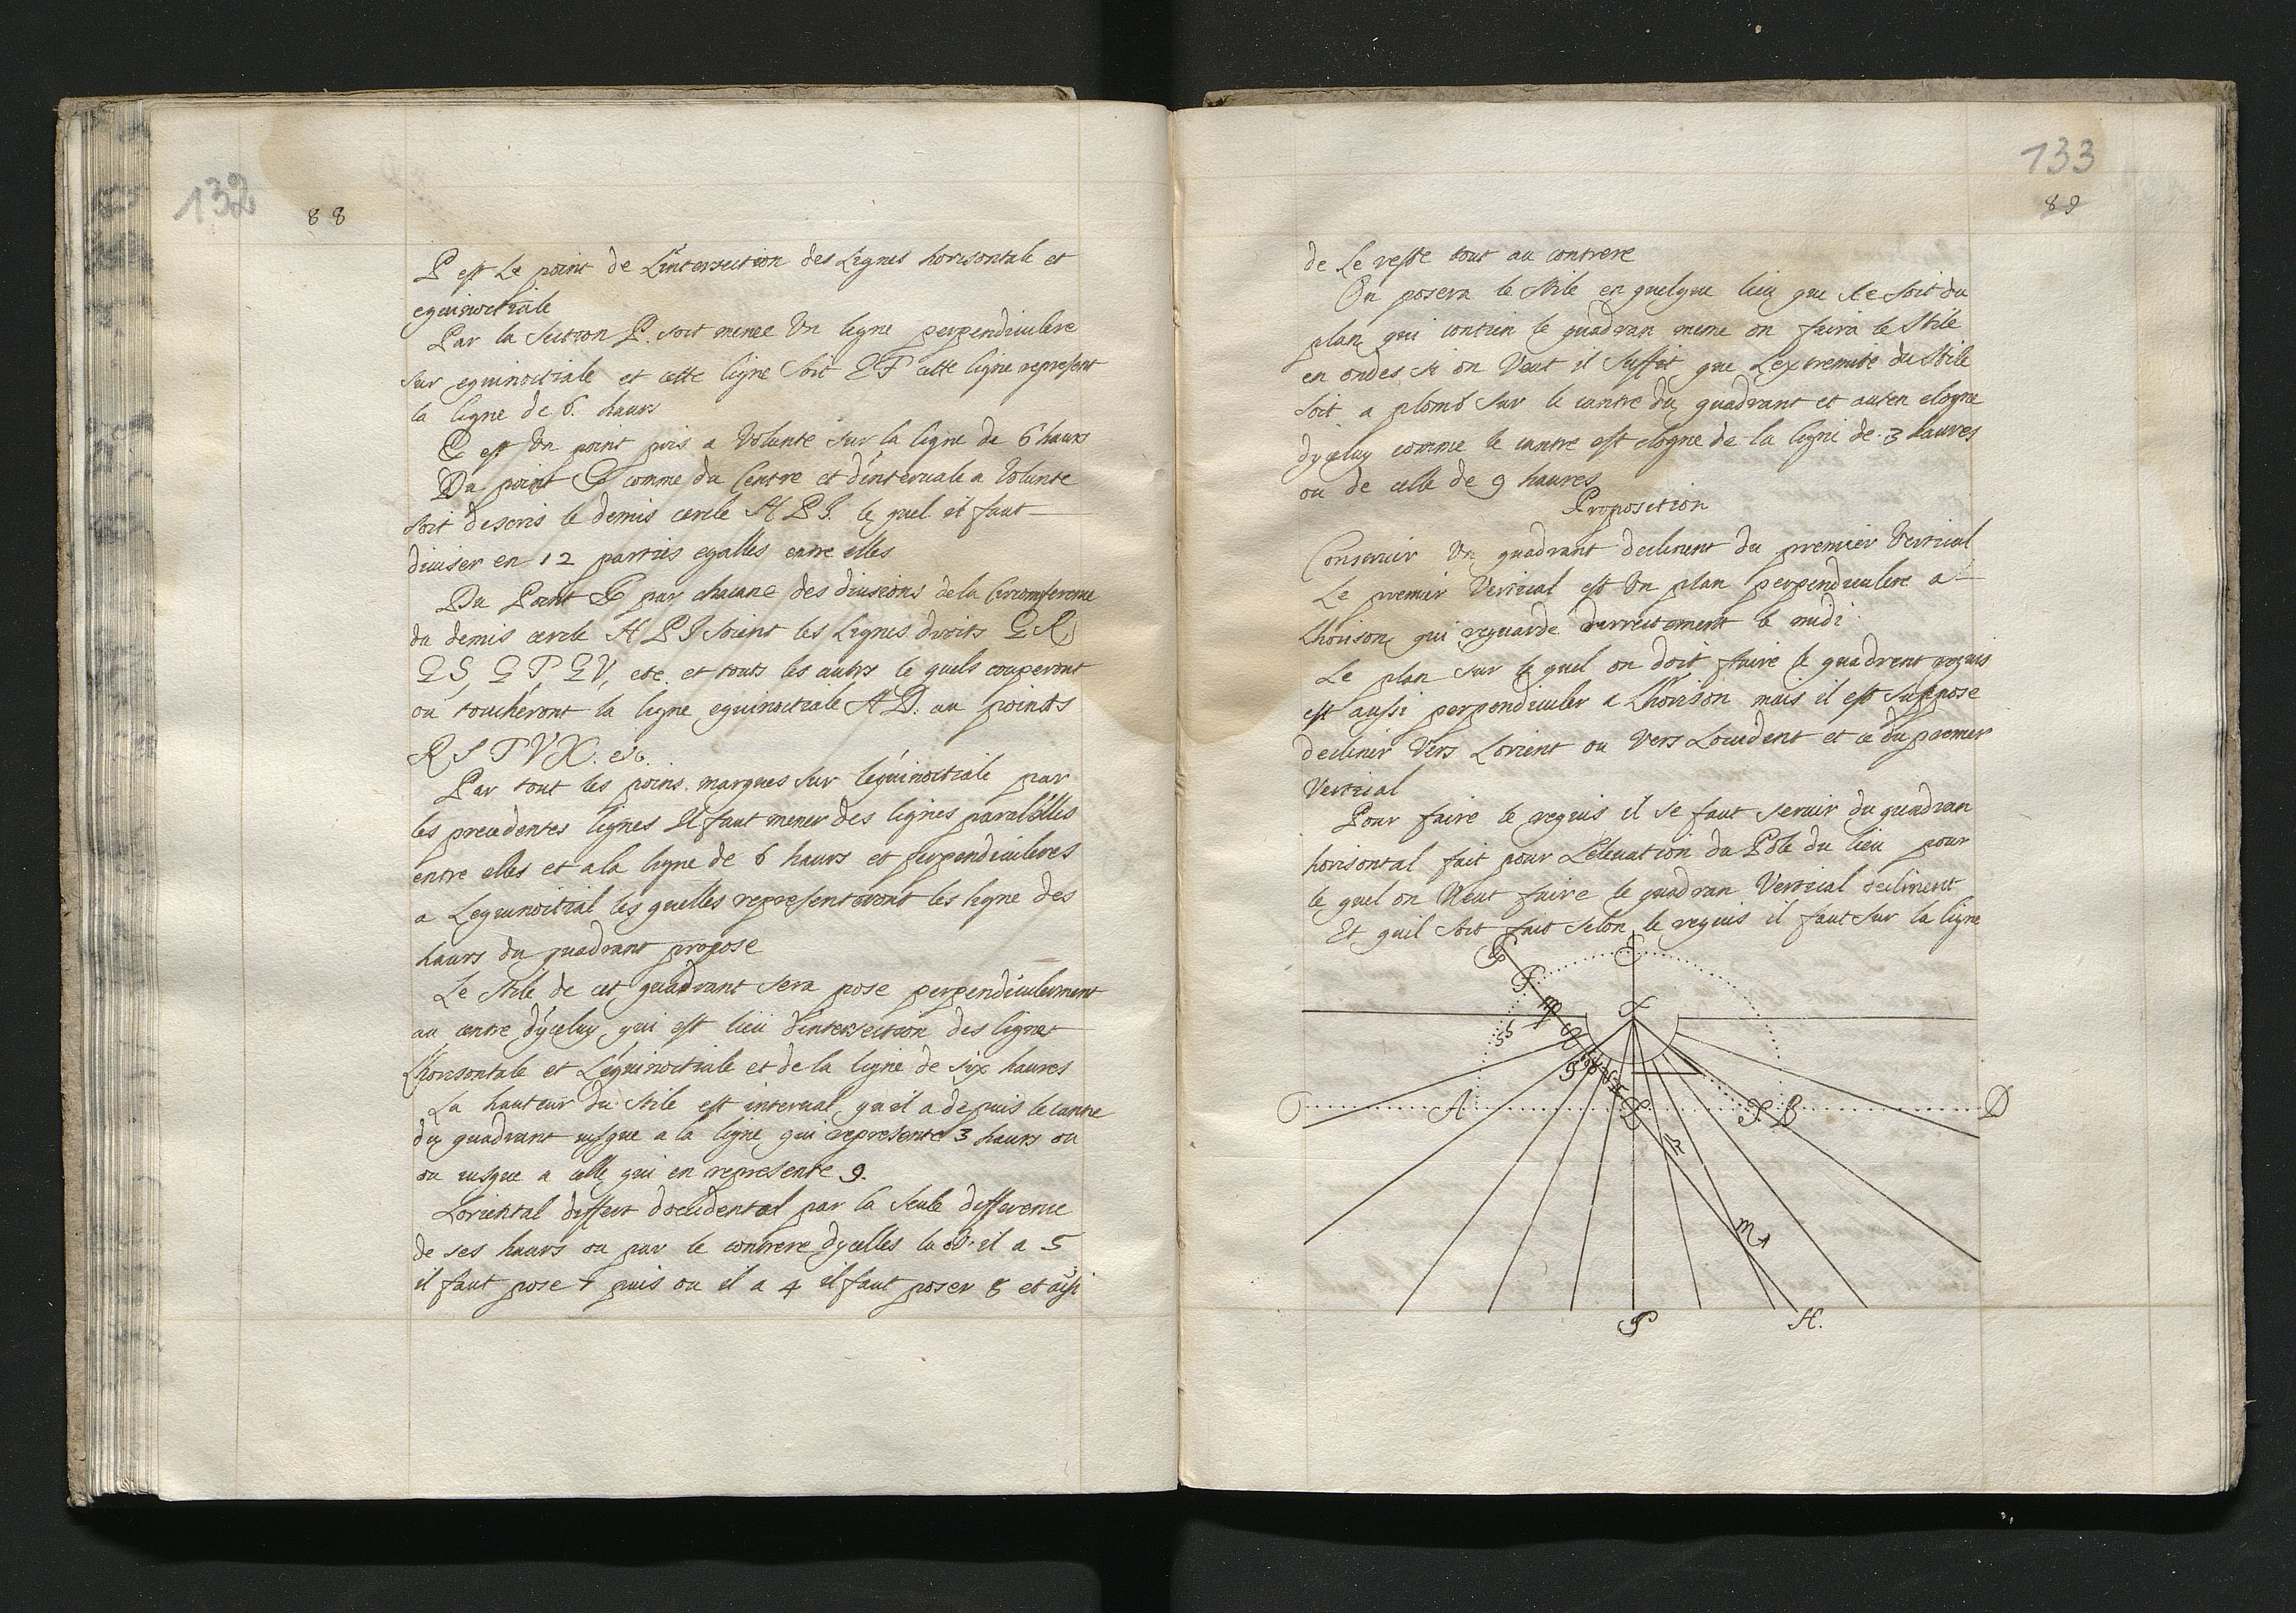 132
88
P est Le point de L'intersection des Lignes horisontale et
equinoctiale
Par la Section P. soit menee Un ligne perpendiculere
sur equinoctiale et cette ligne soit EF cette ligne represent
la ligne de 6. haurs
G est Un point pris a Volunte sur la ligne de 6 haurs
Du point G comme du Centre et d'interuale a Volunte
soit descris le demis cercle H P I. le quel il faut
diuiser en 12 parties egalles entre elles
Du Point G par chacune des diuisions de la Circomference
du demis cercle H P I soient les Lignes droits G R,
G S, G T G V, etc. et touts les autrs le quels couperont
ou toucheront la ligne equinoctiale A D. au pointts
R S T V X. etc.
Par tout les poins marques sur l'equinoctiale par
les precedentes lignes Il faut mener des lignes paralelles
entre elles et a la ligne de 6 haurs et perpendiculeres
a Lequinoctial les quelles representeront les ligne des
haurs du quadrant propose
Le stile de cet quadrant sera pose perpendiculerment
au centre d'yceluy qui est lieu d'intersection des lignes
L'horisontale et L'equinoctiale et de la ligne de six haures
La hauteur du stile est interual qu'il a depuis le cantre
du quadrant jusque a la ligne qui represente 3 haurs ou
ou jusque a celle qui en represente 9.
Loriental differt d'occidental par la seule difference
de ses haurs ou par le contrere d'ycelles la ou il a 5
il faut pose 7 puis ou il a 4 il faut poser 8 et aisi
133
89
de Le reste tout au contrere
On posera le stile en quelque lieu que se soit du
plan qui contien le quadran meme on faira le Stile
en ondes si on Veut il suffit que L'extremite du Stile
soit a plomb sur le cantre du quadrant et auten eloyne
d'yceluy comme le cantre est eloyne de la ligni de 3 haures
ou de celle de 9 haures
Proposition
Construir Un quadrant declinent du premier Vertical
Le premier Vertical est Un plan perpendiculere a
L'horison qui reguarde dirrectement le midi.
Le plan sur le quel on doit faire le quadrent requis
est aussi perpendiculer a L'horison mais il est suppose
declinir Vers Lorient ou Vers Loccident et ce du premer
Vertical
Pour faire le requis il se faut seruir du quadran
horisontal fait pour L'eleuation du Pole du lieu pour
le quel on Veut faire le quadran Vertical declinent
Et quil soit fait selon le requis il faut sur la ligne
G
E
A
B
D
m
F
H.